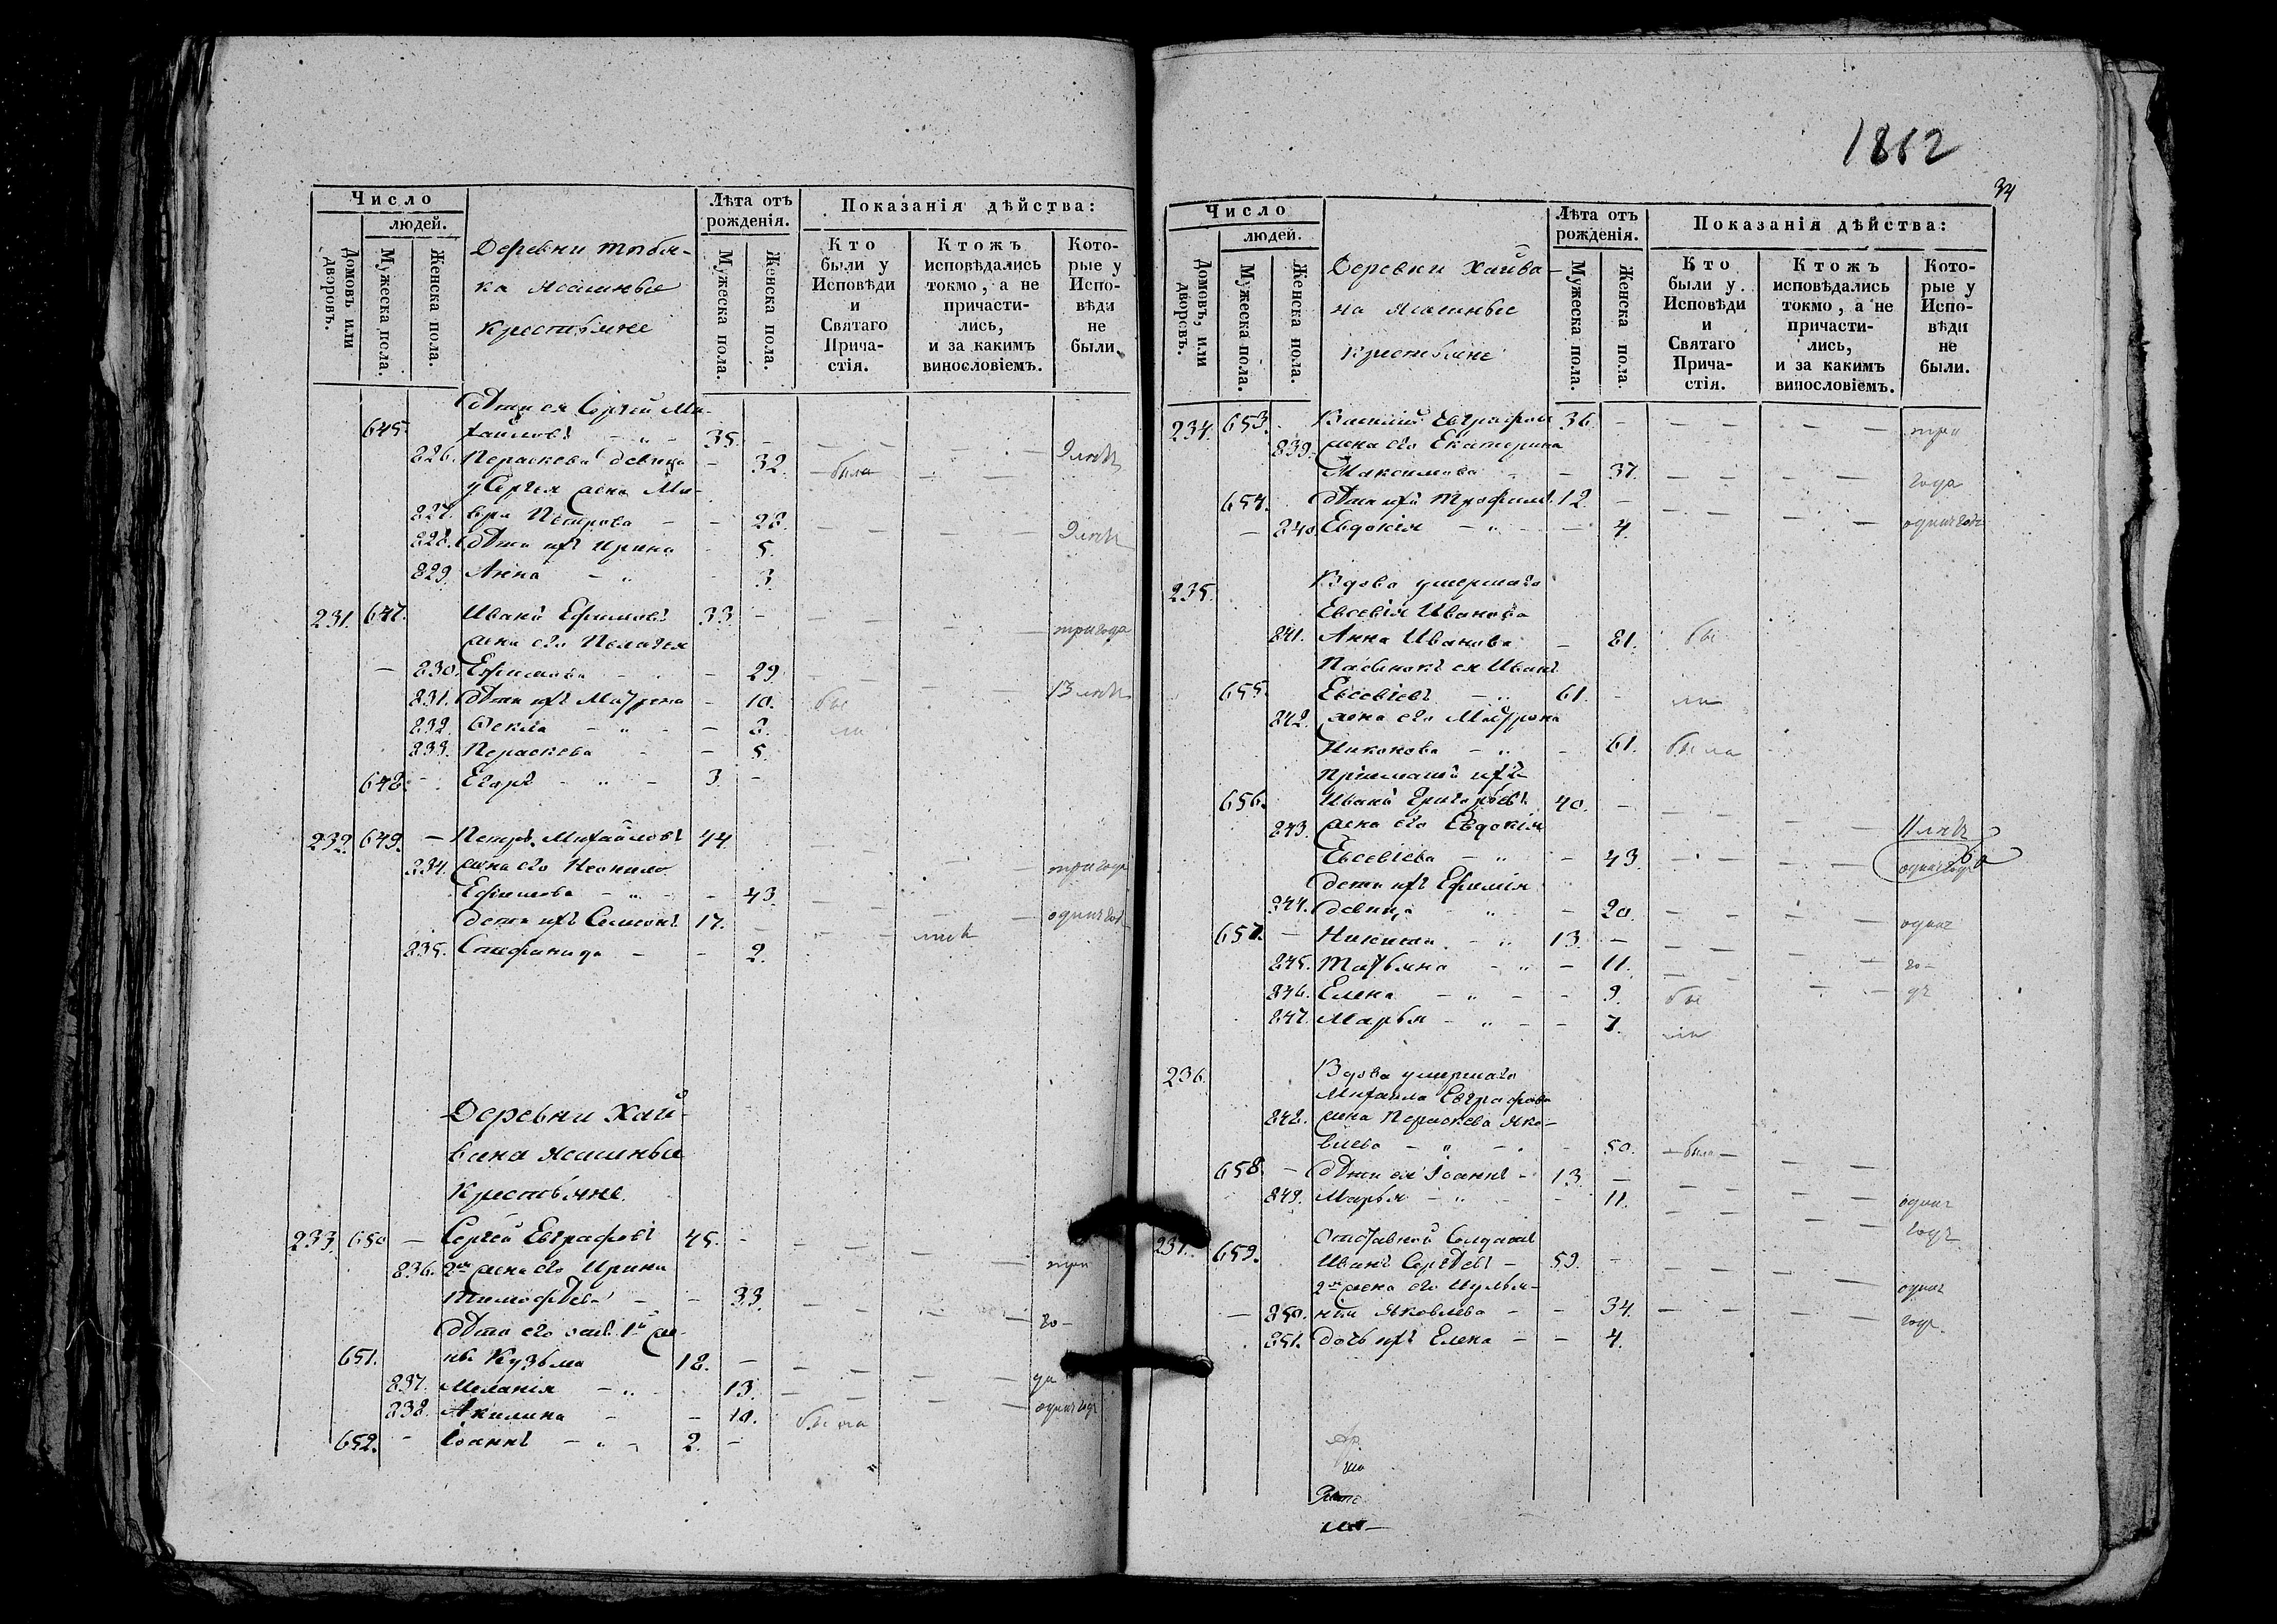 Число
людей.
Домовъ или дворовъ.
Мужеска пола.
Женска пола.
Деревни
ка Ясашные
крестьяне
Лѣта отъ рожденія.
Мужеска пола.
Женска пола.
Показанія дѣйства:
Кто были у Исповѣди и Святаго Причастія.
Ктожъ исповѣдались токмо, а не причастились, и за какимъ винословіемъ.
Которые у Исповѣди не были.
Дѣти ея Сергей Ми-
645. хайловъ — „ — 35. —
826. Параскева девица — 32. была 9 лѣтъ
у Сергея жена Ма-
827. вра Петрова — — 28. 9 лѣтъ
828. Дѣти ихъ Ирина — 5.
829. Анна — „ — 3.
231. 647. Иванъ Ефимовъ 33. — три года
жена его Пелагея
— 830. Ефимова — — 29. 13 лѣтъ
831. Дѣти ихъ Матрена — 10. бы
832. Фекла — „ — — 8. ли
833. Параскева — — 5.
648. — Егоръ — „ — 3. —
232. 649. — Петръ Михайловъ 44.
834. жена его Неонила три года
Ефимова — „ — — 43. одинъ годъ
дети ихъ Семионъ 17.
835. — — 2.
Деревни Хай-
вана Ясашные
Крестьяне.
233. 650 — Сергей Евграфовъ 45. — три
836. 2ая жена его Ирина
Тимофѣева — — 33. го-
Дѣти его отъ 1й же-
651. ны Кузьма 18. — да
837. Меланія — „ 13. одинъ годъ
838. Акилина — — 10. была
652. — Іоаннъ — „ — 2. —
1862
34
Число
людей.
Домовъ, или дворовъ.
Мужеска пола.
Женска пола.
Деревни Хайва-
на Ясашные
Крестьяне
Лѣта отъ рожденія.
Мужеска пола.
Женска пола.
Показанія дѣйства:
Кто были у Исповѣди и Святаго Причастія.
Ктожъ исповѣдались токмо, а не причастились, и за какимъ винословіемъ.
Которые у Исповѣди не были.
234. 653. Василій Евграфовъ 36. — три
839. жена его Екатерина
Максимова — — 37. года
654. Дѣти ихъ Трофимъ 12. —
— 840. Евдокія — „ — 4. одинъ годъ
235. Вдова умершаго
Евсевія Иванова
841. Анна Иванова — 81. бы
Пасынокъ ея Иванъ
655. Евсевіевъ — „ 61. — ли
842. жена его Матрона
Никонова — „ — 61. была
Пріимашъ ихъ
656. Иванъ Григорьевъ 40. — 11 лѣтъ
843. жена его Евдокія
Евсевіева — „ — 43. одинъ годъ
Дети ихъ Ефимія
844. девица — „ — 20. одинъ
657. — Никита — „ 13. — го-
845. Татьяна — „ — 11. дъ
846. Елена — „ — — 9. бы
847. Марья — „ — — 7. ли
236. Вдова умершаго
Михаила Евграфова
848. жена Параскева Яко-
влева — „ — — 50. — была —
658. — Дѣти ея Іоаннъ — 13. — одинъ
849. Марья — „ — 11. годъ
237. Отставной Солдатъ
659. Иванъ Сергѣевъ — 59. — одинъ
2я жена его Ульян-
— 850. Яковлева — — 34. годъ
851. Дочь ихъ Елена — — 4.